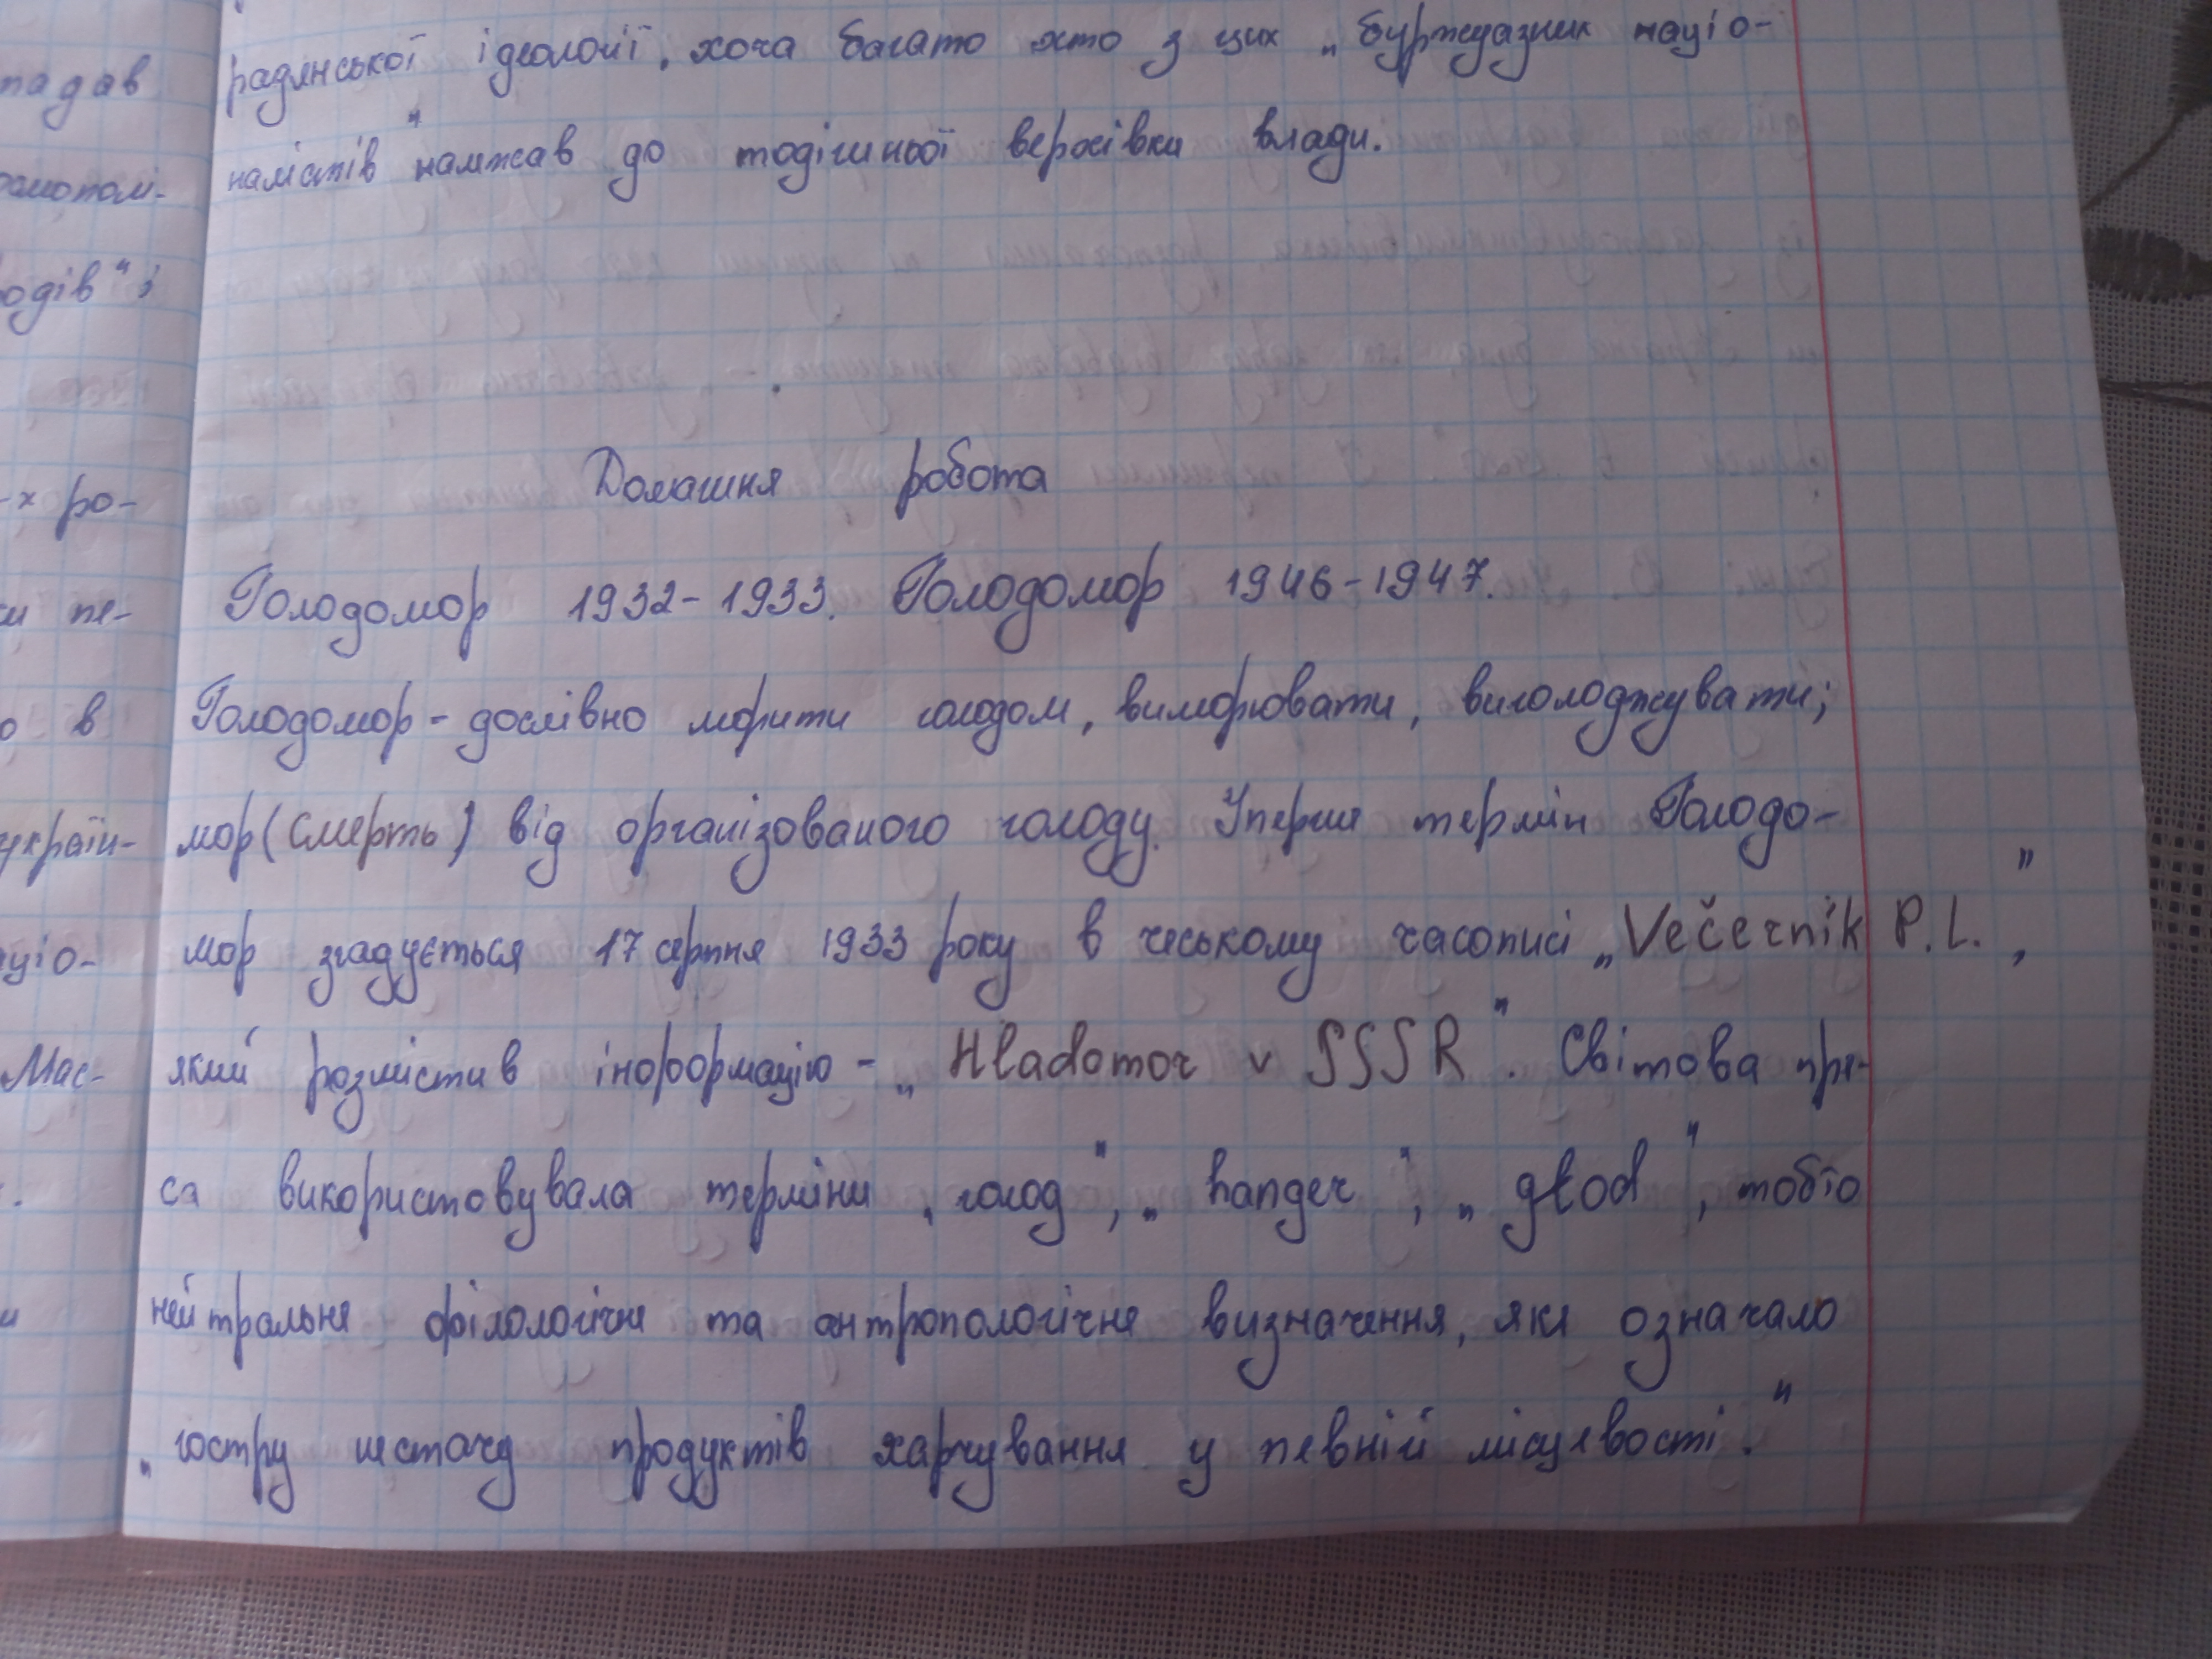 радянської ідеології, хоча багато хто з цих „буржуазних націо-
налістів" належав до тодішньої верхівки влади.
Домашня робота
Голодомор 1932-1933. Голодомор 1946-1947.
Голодомор - дослівно морити голодом, виморювати, виголоджувати;
мор (смерть) від організованого голоду. Уперше термін Голодо-
мор згадується 17 серпня 1933 року в чеському часописі „Večerník P.L.",
який розмістив інформацію - „Hladomor v SSSR". Світова пре-
са використовувала терміни „голод", „hanger", „głod", тобто
нейтральне філологічне та антропологічне визначення, яке означало
„гостру нестачу продуктів харчування у певній місцевості."
падав
одів" і
-х ро-
ки пе-
о в
україн-
аціо-
Мас-